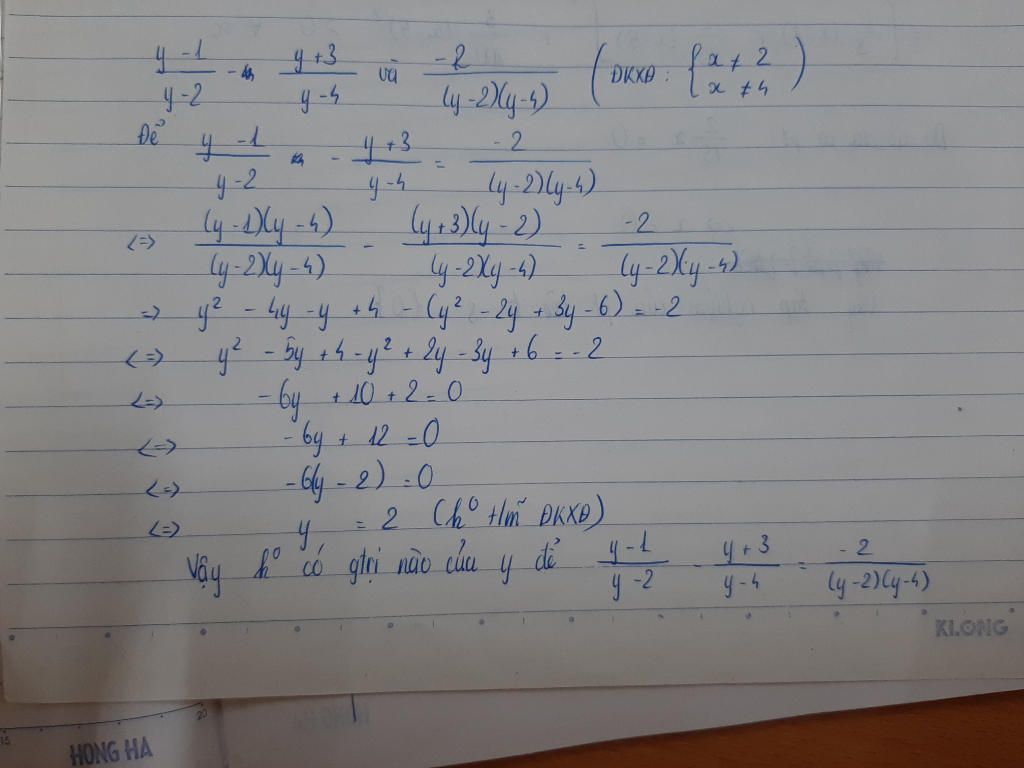 (y-1)/(y-2) - (y+3)/(y-4) và -2/((y-2)(y-4)) (ĐKXĐ: {x ≠ 2; x ≠ 4)
Để (y-1)/(y-2) - (y+3)/(y-4) = -2/((y-2)(y-4))
<=> ((y-1)(y-4))/((y-2)(y-4)) - ((y+3)(y-2))/((y-2)(y-4)) = -2/((y-2)(y-4))
=> y² - 4y - y + 4 - (y² - 2y + 3y - 6) = -2
<=> y² - 5y + 4 - y² + 2y - 3y + 6 = -2
<=> -6y + 10 + 2 = 0
<=> -6y + 12 = 0
<=> -6(y - 2) = 0
<=> y = 2 (k⁰ t/m ĐKXĐ)
Vậy k⁰ có gtrị nào của y để (y-1)/(y-2) - (y+3)/(y-4) = -2/((y-2)(y-4))
KLONG
15 20
HONG HA